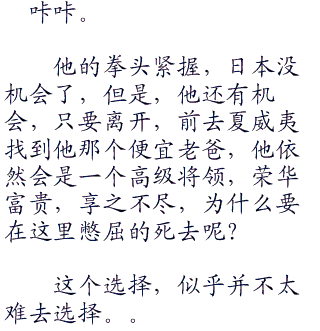 咔咔。
他的拳头紧握，日本没
机会了，但是，他还有机
会，只要离开，前去夏威夷
找到他那个便宜老爸，他依
然会是一个高级将领，荣华
富贵，享之不尽，为什么要
在这里憋屈的死去呢？
这个选择，似乎并不太
难去选择。。